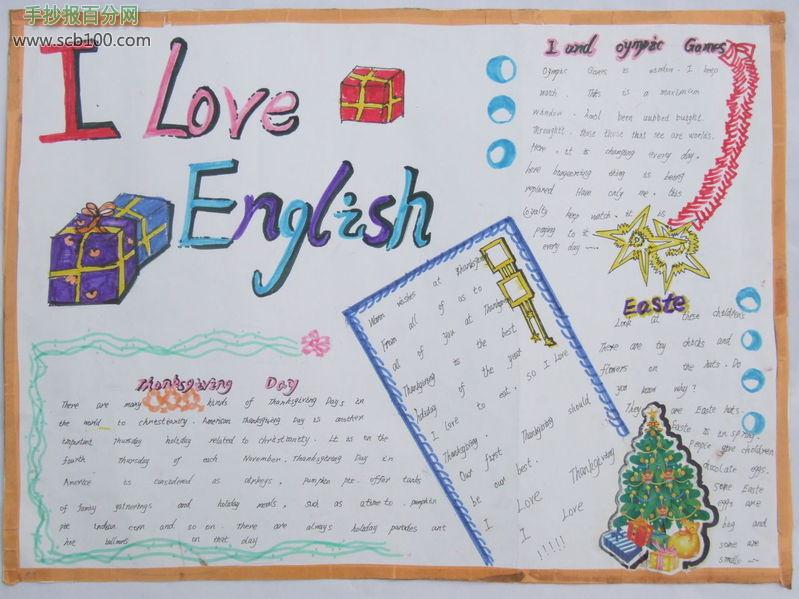 手抄报百分网
www.scb100.com
I Love
English
I and olympic Games
Olympic Games is window. I keep
watch. This is a maximum
window. had been wabbed bught.
throught. those those that see are worlds.
Here. it is changing every day.
here bragoaning thing is being
replaced Have only me. this
loyalty keep watch. it is
paying to it
every day
Thanksgiving Day
There are many kinds of Thanksgiving Days in
the world to christianity. American Thanksgiving Day is another
important Thursday holiday related to christianity. It is on the
fourth Thursday of each November. Thanksgiving Day in
America is considered as turkeys, pumpkin pie. offer tanks
of family gatherings and holiday meals, such as a time to. pumpkin
pie Indian corn and so on. There are always holiday parades and
hot balloons on that day
Warm wishes at Thanksgiving
From all of us to
all of you at Thanksgiving
Thanksgiving is the best
holiday of the year
I love to eat. so I Love
Thanksgiving.
Our first Thanksgiving should
be our best.
I Love Thanksgiving
I Love
!!!!!
Easte
Look at these children's
There are toy chicks and
flowers on the hats. Do
you know why?
They are Easte hats.
Easte is in spring
People give children
chocolate eggs.
some Easte
eggs are
big and
some are
small